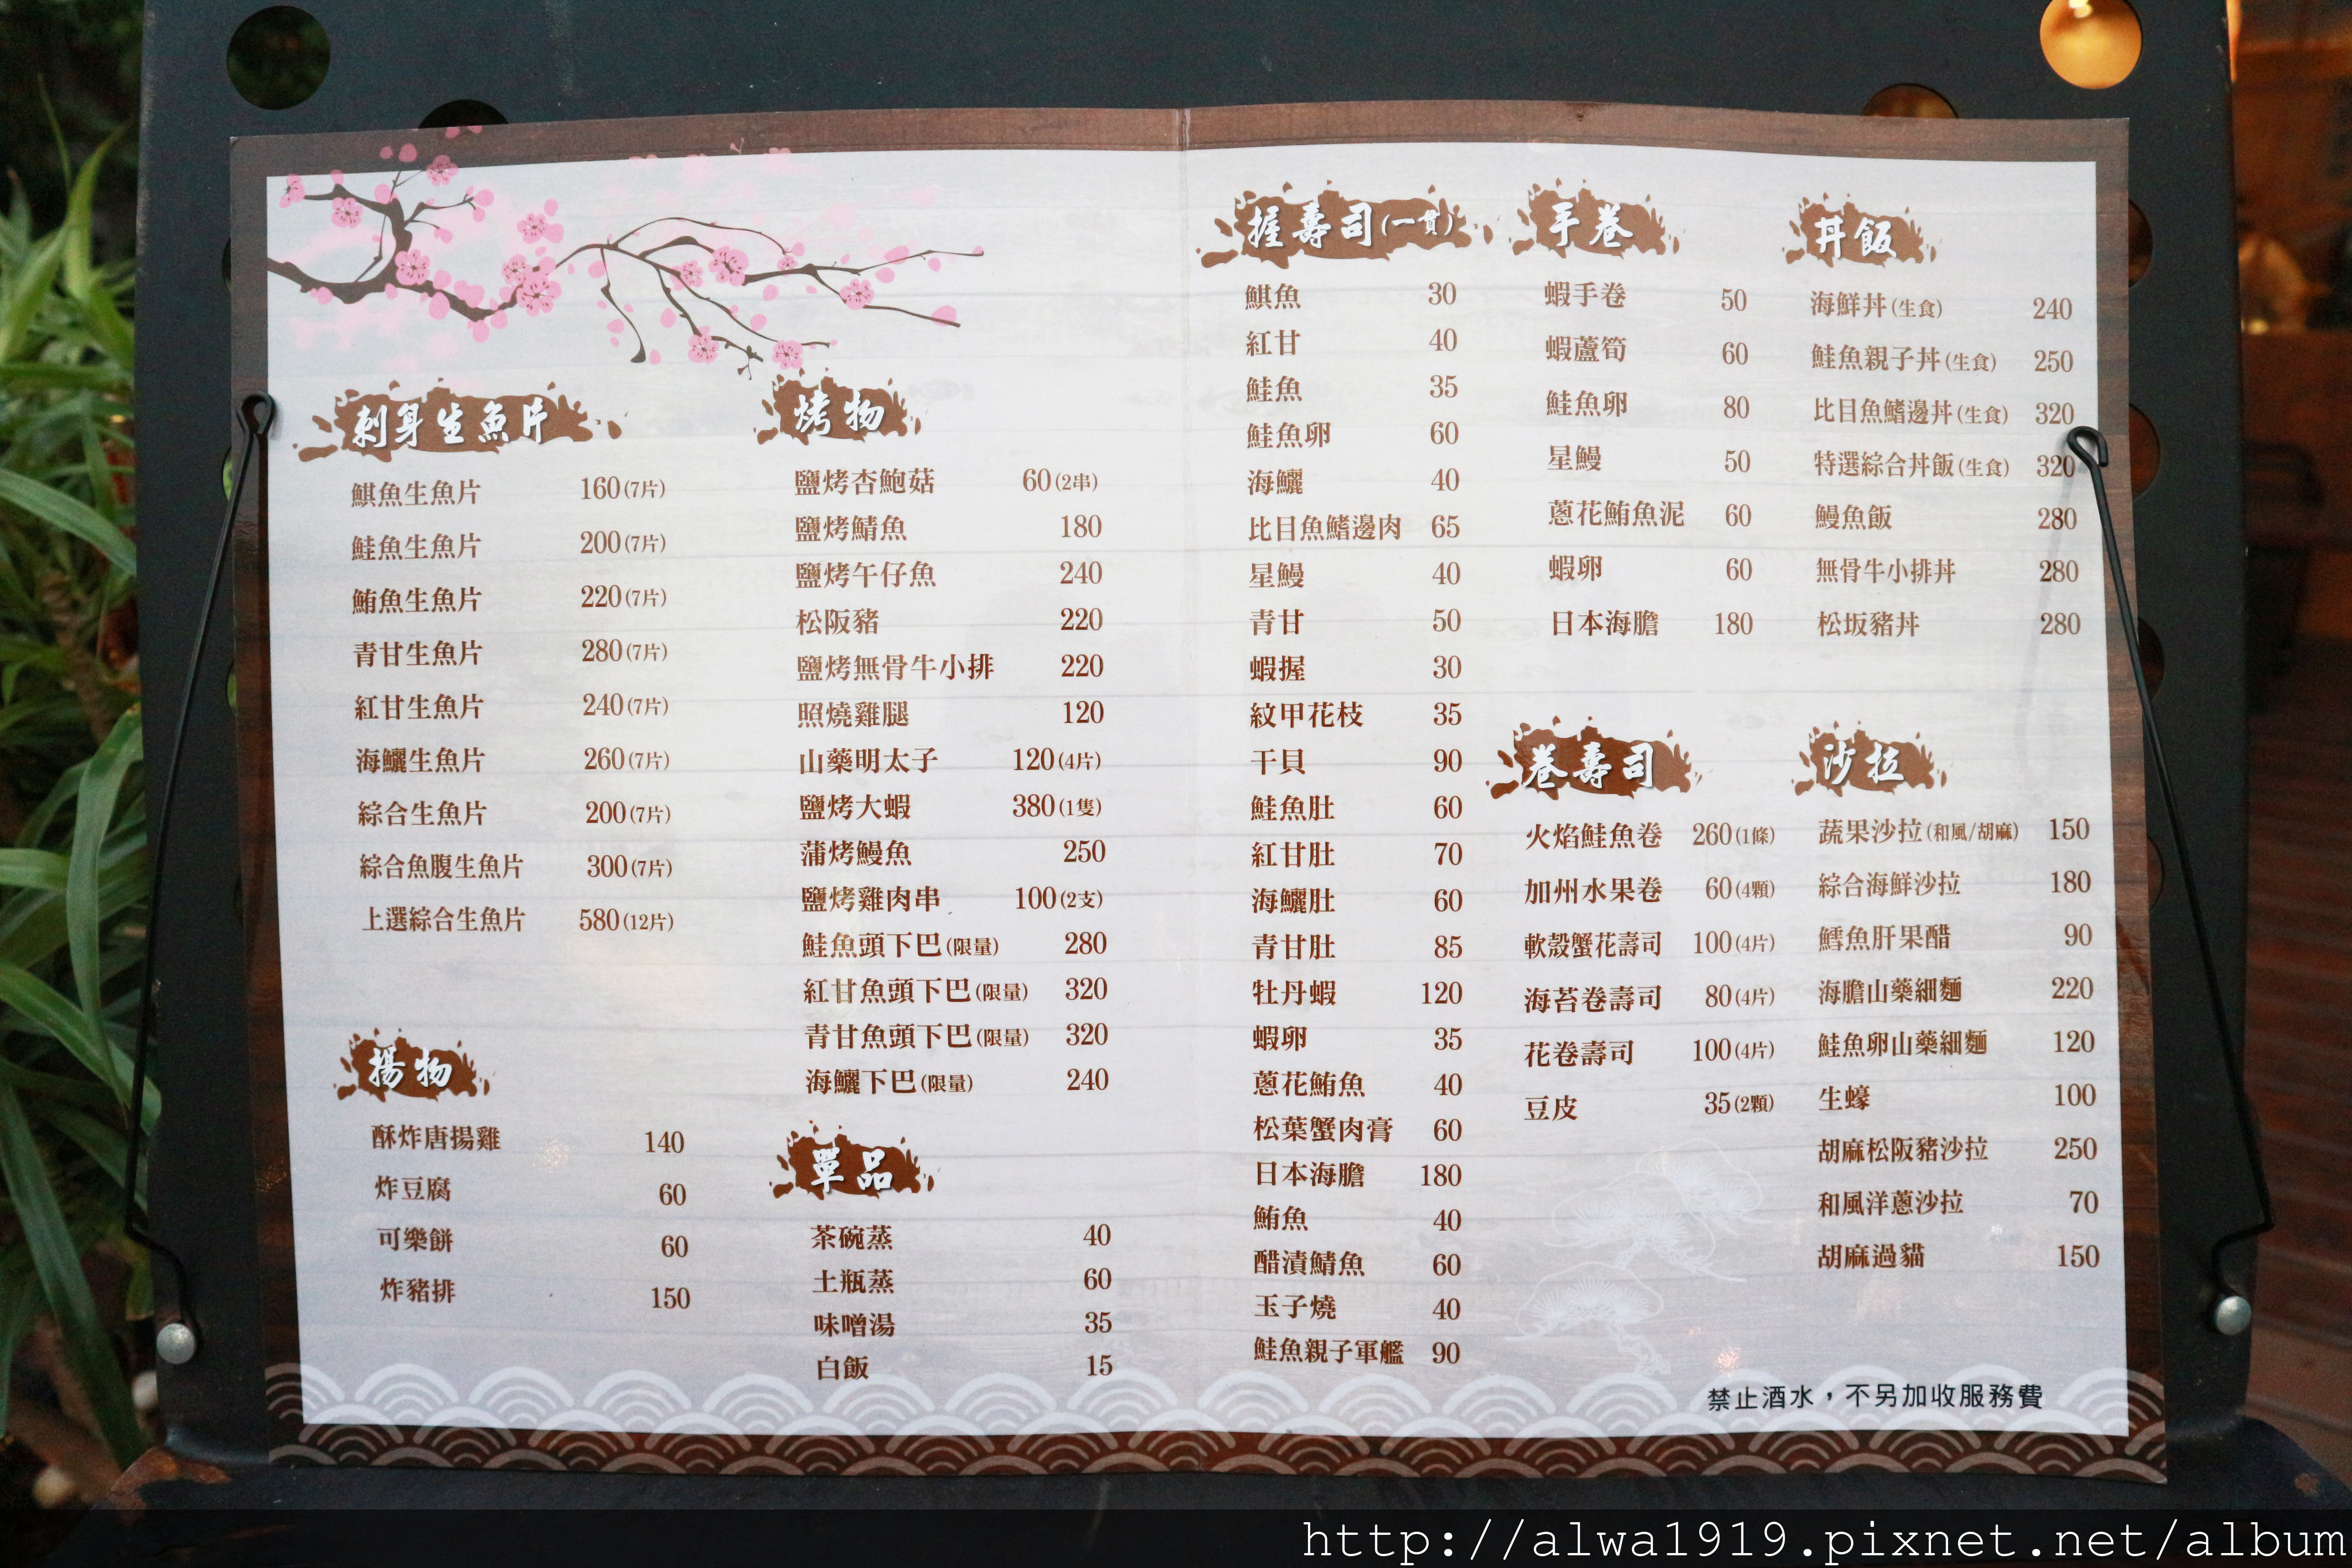 刺身生魚片
鯕魚生魚片 160(7片)
鮭魚生魚片 200(7片)
鮪魚生魚片 220(7片)
青甘生魚片 280(7片)
紅甘生魚片 240(7片)
海鱺生魚片 260(7片)
綜合生魚片 200(7片)
綜合魚腹生魚片 300(7片)
上選綜合生魚片 580(12片)
揚物
酥炸唐揚雞 140
炸豆腐 60
可樂餅 60
炸豬排 150
烤物
鹽烤杏鮑菇 60(2串)
鹽烤鯖魚 180
鹽烤午仔魚 240
松阪豬 220
鹽烤無骨牛小排 220
照燒雞腿 120
山藥明太子 120(4片)
鹽烤大蝦 380(1隻)
蒲烤鰻魚 250
鹽烤雞肉串 100(2支)
鮭魚頭下巴(限量) 280
紅甘魚頭下巴(限量) 320
青甘魚頭下巴(限量) 320
海鱺下巴(限量) 240
單品
茶碗蒸 40
土瓶蒸 60
味噌湯 35
白飯 15
握壽司(一貫)
鯕魚 30
紅甘 40
鮭魚 35
鮭魚卵 60
海鱺 40
比目魚鰭邊肉 65
星鰻 40
青甘 50
蝦握 30
紋甲花枝 35
干貝 90
鮭魚肚 60
紅甘肚 70
海鱺肚 60
青甘肚 85
牡丹蝦 120
蝦卵 35
蔥花鮪魚 40
松葉蟹肉膏 60
日本海膽 180
鮪魚 40
醋漬鯖魚 60
玉子燒 40
鮭魚親子軍艦 90
手卷
蝦手卷 50
蝦蘆筍 60
鮭魚卵 80
星鰻 50
蔥花鮪魚泥 60
蝦卵 60
日本海膽 180
卷壽司
火焰鮭魚卷 260(1條)
加州水果卷 60(4顆)
軟殼蟹花壽司 100(4片)
海苔卷壽司 80(4片)
花卷壽司 100(4片)
豆皮 35(2顆)
丼飯
海鮮丼(生食) 240
鮭魚親子丼(生食) 250
比目魚鰭邊丼(生食) 320
特選綜合丼飯(生食) 320
鰻魚飯 280
無骨牛小排丼 280
松坂豬丼 280
沙拉
蔬果沙拉(和風/胡麻) 150
綜合海鮮沙拉 180
鱈魚肝果醋 90
海膽山藥細麵 220
鮭魚卵山藥細麵 120
生蠔 100
胡麻松阪豬沙拉 250
和風洋蔥沙拉 70
胡麻過貓 150
禁止酒水，不另加收服務費
http://alwa1919.pixnet.net/album